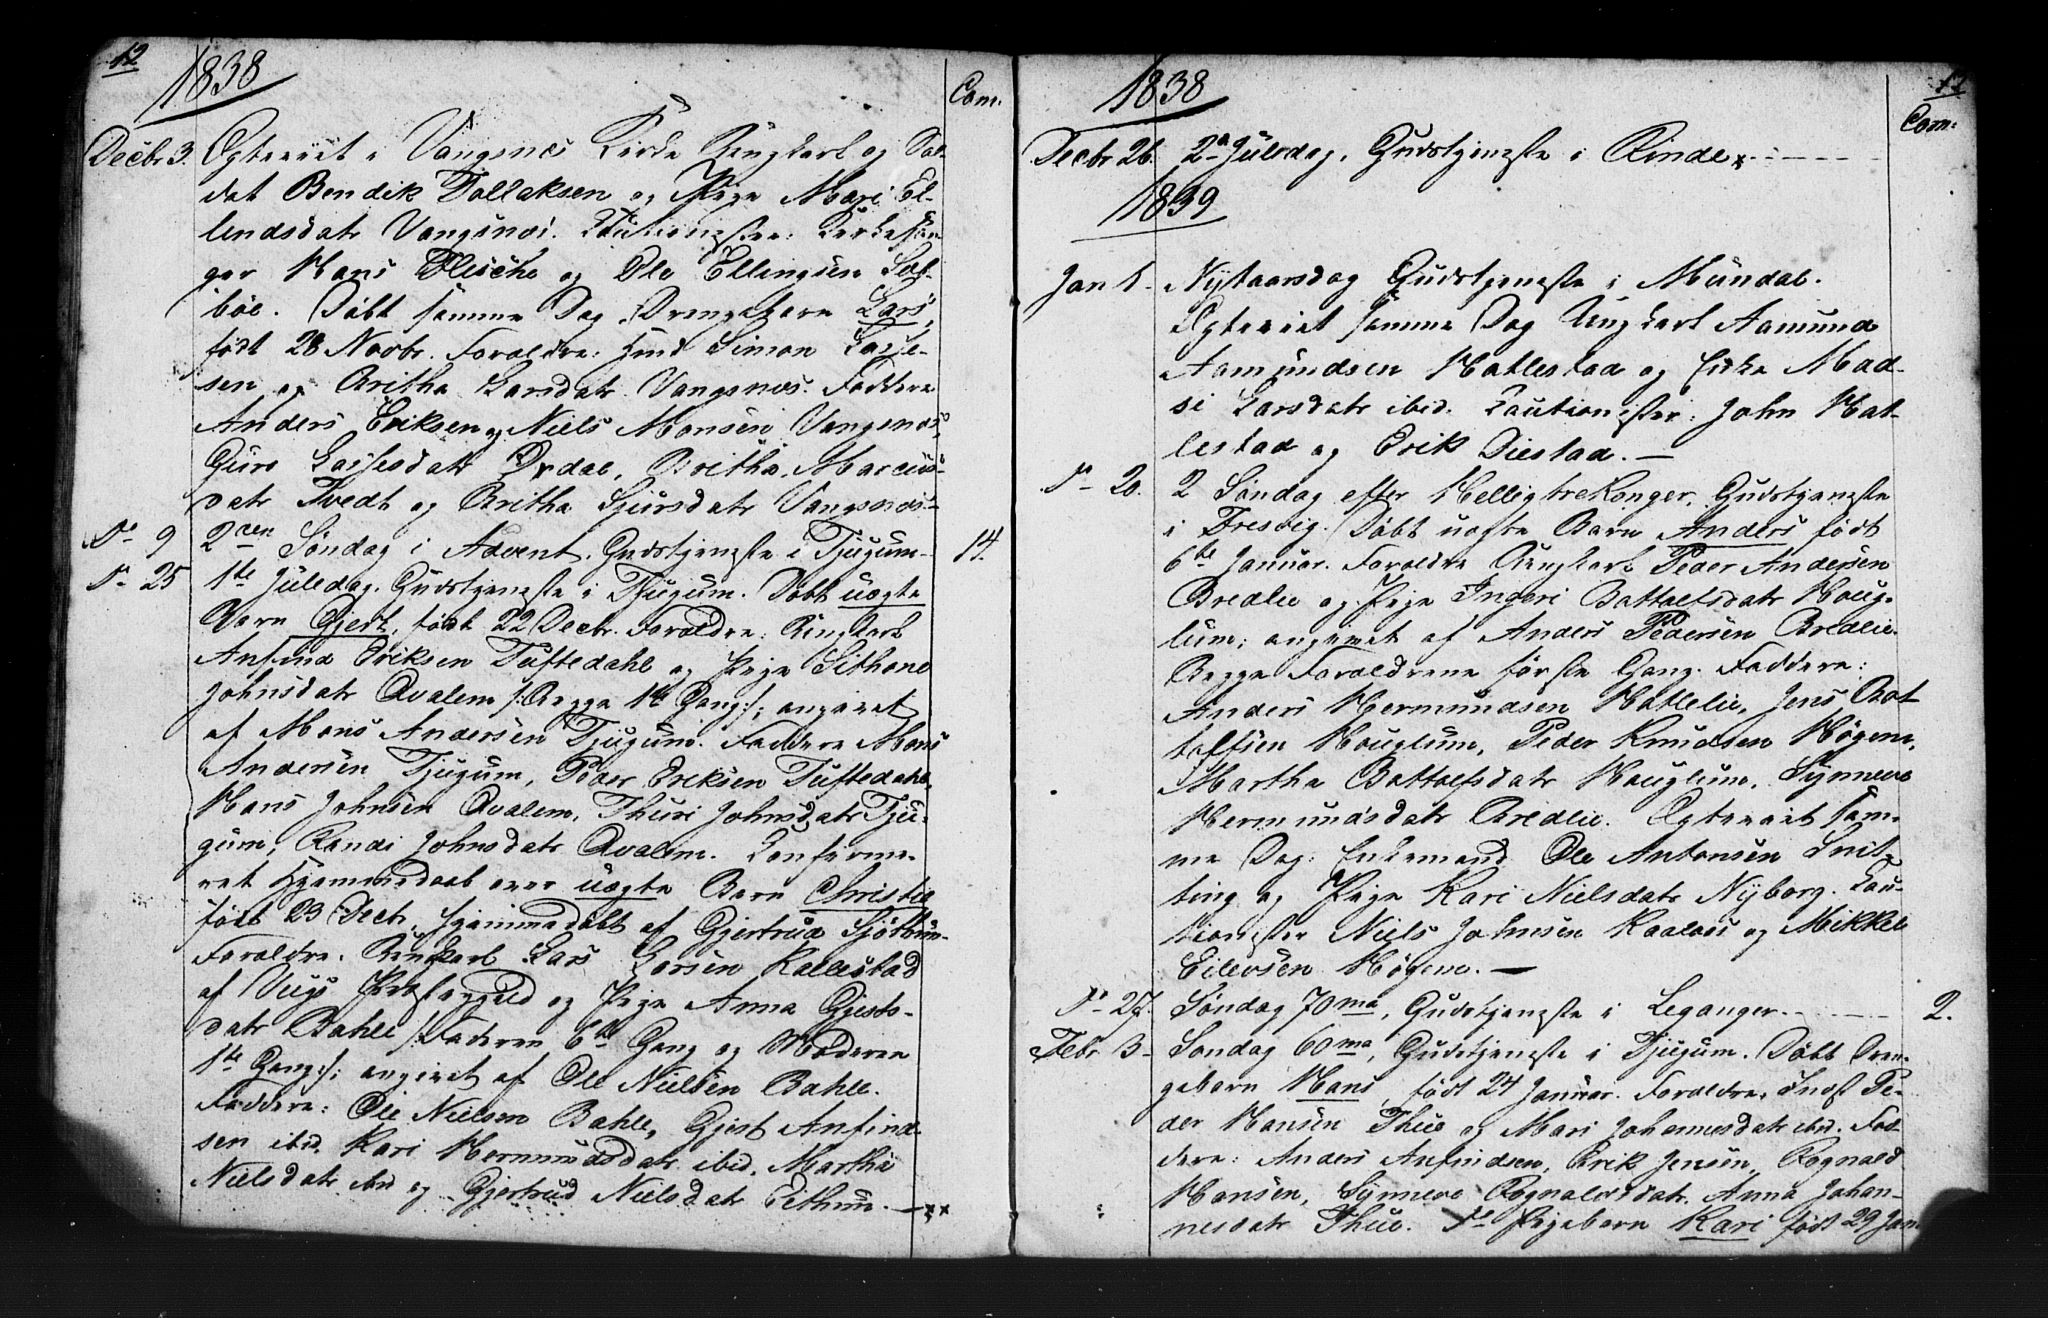 12
1838
Com.
Decbr 3. Ægteviet i Vangsnæs Kirke Ungkarl og Sol-
dat Bendik Tollaksen og Pige Mari El-
lendsdatr Vangsnæs. Cautionister: Kirkesan-
ger Hans Flesche og Ole Ellingsen Sæl-
böe. Döbt samme Dag Drengebarn Lars,
födt 28 Novbr. Forældre: Hmd Simon Lasse-
sen og Britha Larsdatr Vangsnæs. Faddere
Anders Eriksen og Niels Monsen Vangsnæs,
Guro Lassesdatr Ovdal, Britha Marcus-
datr Tvedt og Britha Sjursdatr Vangsnæs.
D- 9 2den Söndag i Advent. Gudstjeneste i Tjugum. 14.
D- 25 1ste Juledag. Gudstjeneste i Tjugum. Döbt uægte
Barn Gjert, födt 22 Decbr. Forældre: Ungkarl
Anfind Eriksen Tuftedahl og Pige Sithone
Johnsdatr Qvalem /: Begge 1ste Gang :/; angivet
af Mons Andersen Tjugum. Faddere Mons
Andersen Tjugum, Peder Eriksen Tuftedahl,
Hans Johnsen Qvalem, Thuri Johnsdatr Tju-
gum, Randi Johnsdatr Qvalem. Konfirme-
ret Hjemmedaab over uægte Barn Christie
födt 23 Decbr, hjemmedöbt af Gjertrud
Forældre: Ungkarl Lars Larsen Kallestad
af Viigs Præstegjeld og Pige Anna Gjests-
datr Bahle /: Faderen 6te Gang og Moderen
1ste Gang :/; angivet af Ole Nielsen Bahle.
Faddere: Ole Nielsen Bahle, Gjest Anfind-
sen ibid. Kari Hermundsdatr ibid. Martha
Nielsdatr ibid og Gjertrud Nielsdatr Eithun.
1838
Com:
Decbr 26. 2den Juledag, Gudstjeneste i Rinde
1839
Jan 1. Nytaarsdag Gudstjeneste i Mundal.
Ægteviet samme Dag Ungkarl Aamund
Aamundsen Hatlestad og Enke Mad-
si Larsdatr ibid. Cautionister: John Hat-
lestad og Erik Diestad.
D- 20. 2 Söndag efter Helligtrekonger. Gudstjeneste
i Fresvig. Döbt uægte Barn Anders födt
6te Januar. Forældre Ungkarl Peder Andersen
Bredlie og Pige Ingeri Battolfsdatr Houg-
lum; angivet af Anders Pedersen Bredlie.
Begge Forældrene förste Gang. Faddere:
Anders Hermundsen Hatlelie, Jens Bat-
tolfsen Houglum, Peder Knudsen Högem,
Martha Battolfsdatr Houglum, Synneve
Hermundsdatr Bredlie. Ægteviet sam-
me Dag: Enkemand Ole Antonsen Snit-
ting og Pige Kari Nielsdatr Nyborg. Cau-
tionister Niels Johnsen Kaalaas og Mikkel
Eilevsen Högem.
D- 27. Söndag 70ma, Gudstjeneste i Leganger. 2.
Febr 3. Söndag 60ma, Gudstjeneste i Tjugum. Döbt Dren-
gebarn Hans, födt 24 Januar. Forældre: Inds Pe-
der Hansen Thue og Mari Johannesdatr ibid. Fad-
dere: Anders Anfindsen, Erik Jensen, Rognald
Hansen, Synneve Rognaldsdatr, Anna Johan-
nesdatr Thue. D- Pigebarn Kari födt 29 Jan